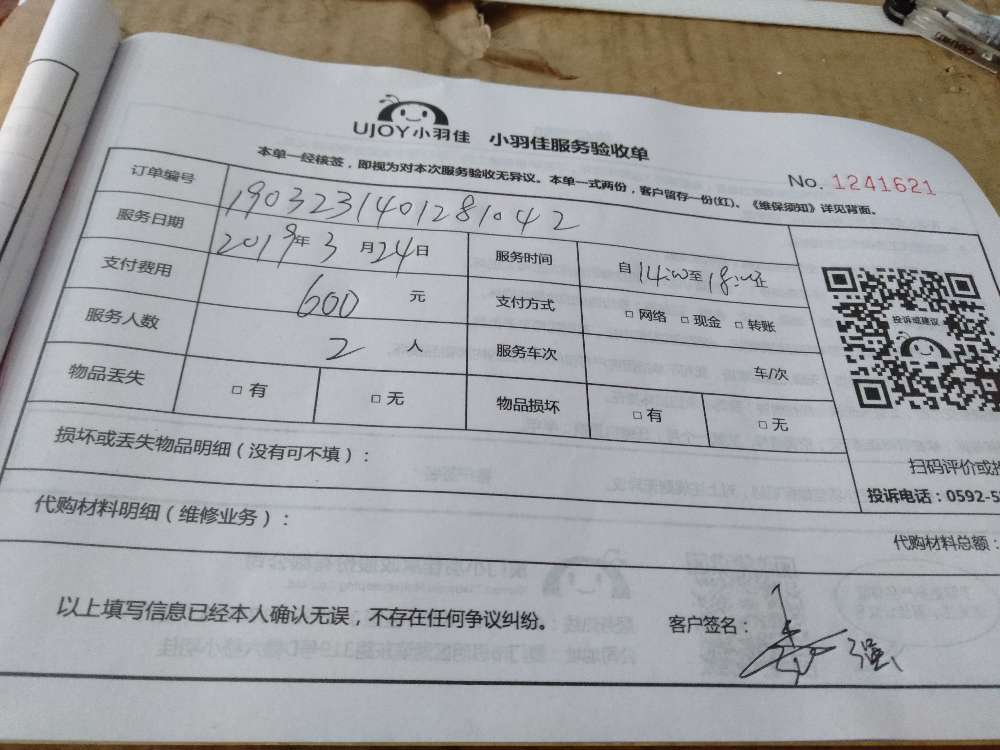 UJOY小羽佳 小羽佳服务验收单
No. 1241621
本单一经核签，即视为对本次服务验收无异议。本单一式两份，客户留存一份(红)、《维保须知》详见背面。
订单编号 1903231401281042
服务日期 2019年 3 月 24 日 服务时间 自 14:00 至 18:00 止
支付费用 600 元 支付方式 □ 网络 □ 现金 □ 转账
服务人数 2 人 服务车次 车/次
物品丢失 □ 有 □ 无 物品损坏 □ 有 □ 无
投诉或建议
扫码评价或
损坏或丢失物品明细（没有可不填）：
投诉电话：0592-5
代购材料明细（维修业务）：
代购材料总额：
以上填写信息已经本人确认无误，不存在任何争议纠纷。 客户签名： 强